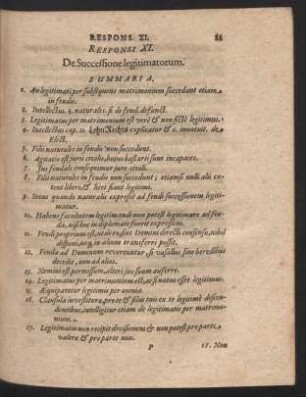 RESPONS. XI. 86
RESPONSI XI.
De Successione legitimatorum.
SUMMARIA.
1. An legitimati per subsequens matrimonium succedant etiam
in feudis.
2. Intellectus §. naturales. si de feud. defunct.
3. Legitimatus per matrimonium est verè & non fictè legitimus.
4. Intellectus cap. 11. Lehn Rechts explicatur & c. innotuit. de
Elect.
5. Filii naturales in feudis non succedunt.
6. Agnatio est juris civilis, hujus bastarti sunt incapaces.
7. Jus feudale consequimur jure civili.
8. Filii naturales in feudis non succedunt; etiamsi nulli alii ex-
tent liberi, & licet fiant legitimi.
9. Secus quando naturalis expressè ad feudi successionem legiti-
matur.
10. Habens facultatem legitimandi non potest legitimare ad feu-
da, nisi hoc in diplomate fuerit expressum.
11. Feudi proprium est, ut sine ejus Domini directi consensu, nihil
disponi, neq; in alium transferri possit.
12. Feuda ad Dominum revertuntur, si vasallus sine heredibus
decedit, non ad alios.
13. Nemini est permissum, alteri jus suum auferre.
14. Legitimatus per matrimonium est, ac si natus esset legitimus.
15. Æquiparatur legitimis per omnia.
16. Clausula investitura, pro te & filiis tuis ex te legitimè descen-
dentibus, intelligitur etiam de legitimatis per matrimo-
nium.
17. Legitimatio non recipit divisionem & non potest pro parte
valere & pro parte non.
P 18. Non